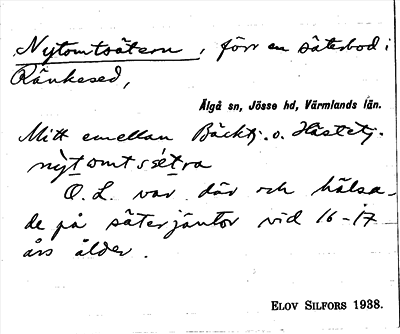 Nytomtsätern, förr en säterbod i
Ränkesed,
Älgå sn, Jösse hd, Värmlands län.
Mitt emellan Bäcktj. o. Hästetj.
nỳtomtsétra
O. L. var där och hälsa-
de på säterjäntor vid 16-17
års ålder.
ELOV SILFORS 1938.